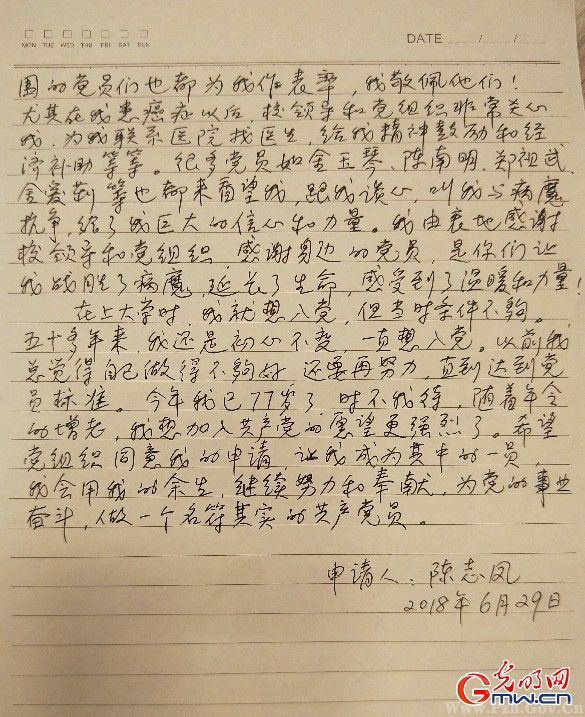 MON TUE WED THU FRI SAT SUN
DATE / /
围的党员们也都为我作表率，我敬佩他们！
尤其在我患癌症以后，校领导和党组织非常关心
我，为我联系医院找医生，给我精神鼓励和经
济补助等等。很多党员如金玉琴、陈南明、郑祖武、
金爱莉等也都来看望我，跟我谈心，叫我与病魔
抗争，给了我巨大的信心和力量。我由衷地感谢
校领导和党组织，感谢身边的党员，是你们让
我战胜了病魔，延长了生命，感受到了温暖和力量！
在上大学时，我就想入党，但当时条件不夠。
五十多年来，我还是初心不变，一直想入党。以前我
总觉得自己做得不夠好，还要再努力，直到达到党
员标准。今年我已77岁了，时不我待，随着年令
的增老，我想加入共产党的愿望更强烈了。希望
党组织同意我的申请，让我成为其中的一员，
我会用我的余生，继续努力和奉献，为党的事业
奋斗，做一个名符其实的共产党员。
申请人：陈志凤
2018年6月29日
光明网
GMW.cn
www.rzb.gov.cn